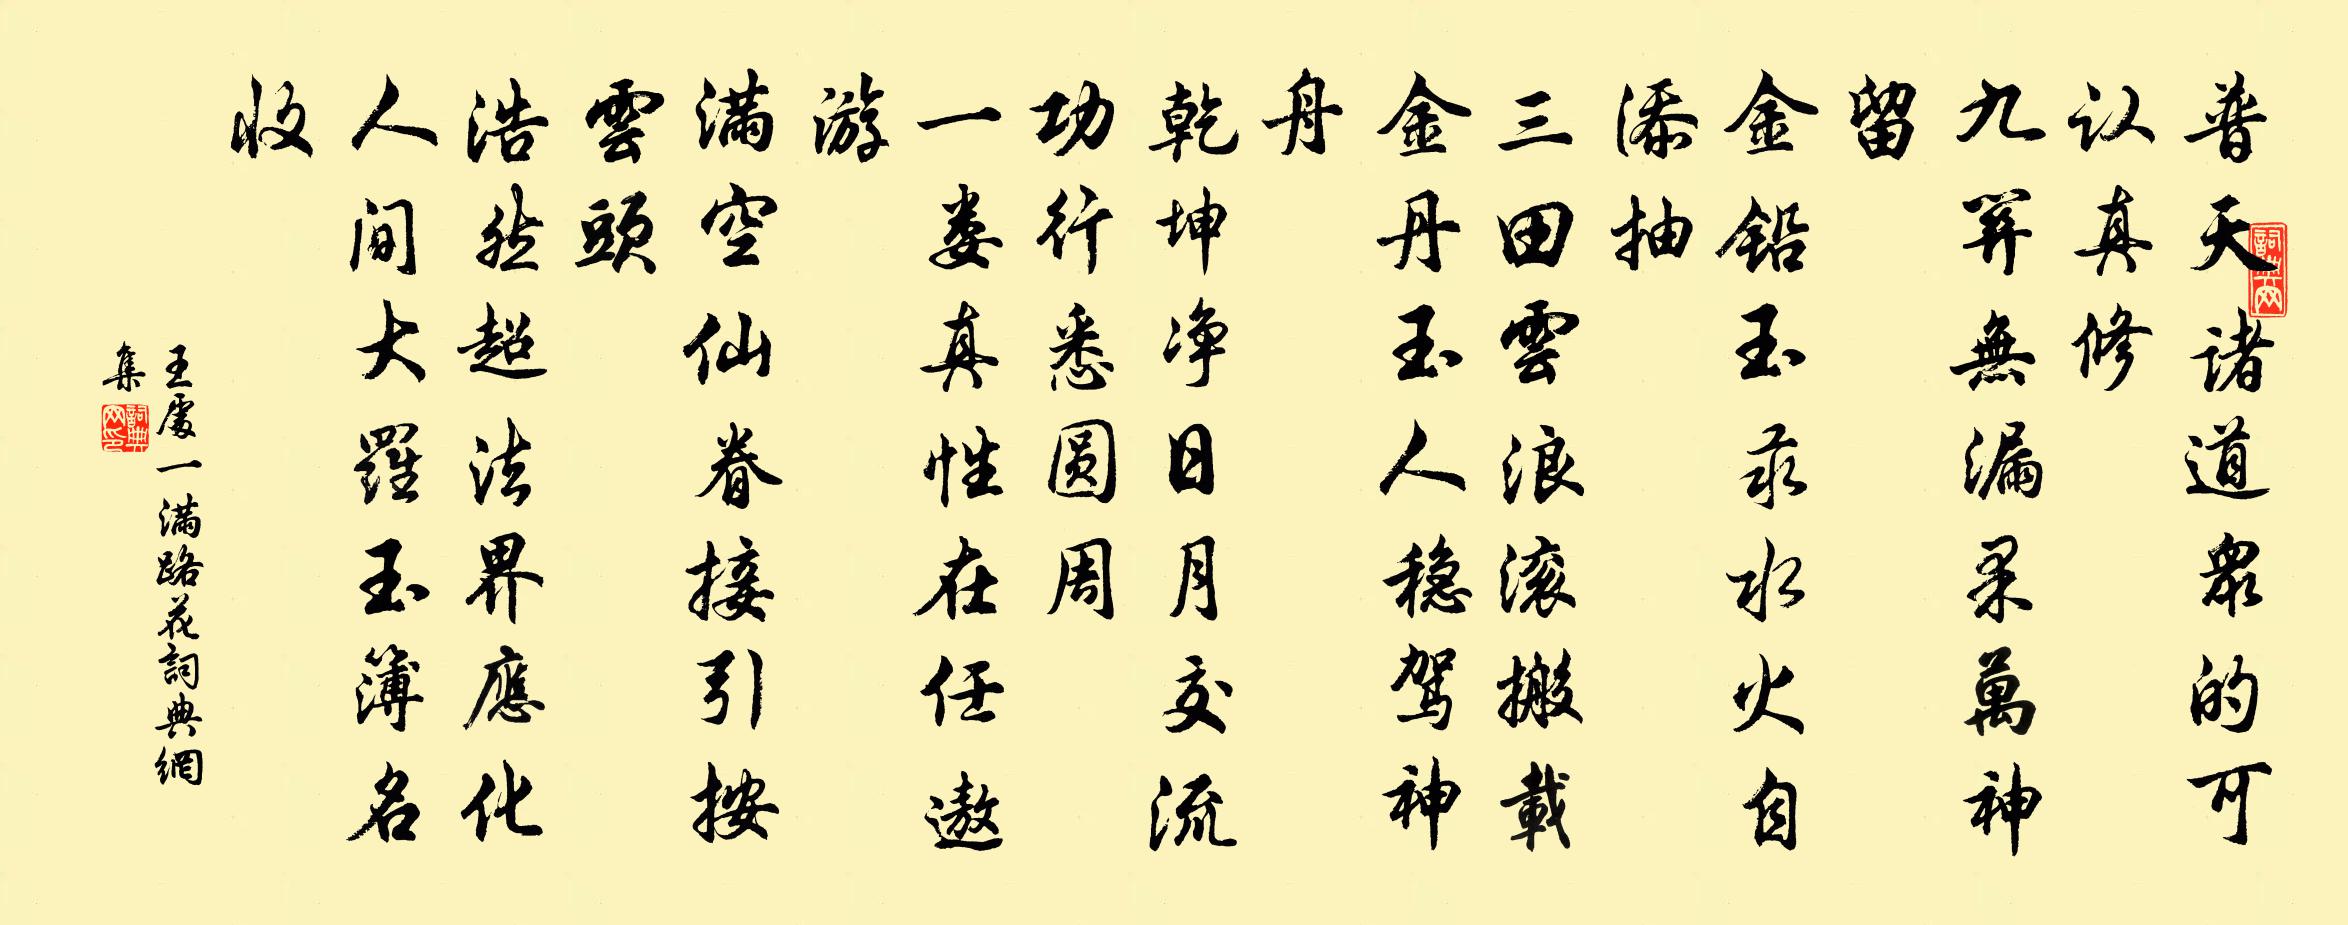 普天諸道眾的可
认真修
九關無漏采萬神
留
金鉛玉汞水火自
添抽
三田雲浪滚搬載
金丹玉人稳駕神
舟
乾坤净日月交流
功行悉圆周
一娄真性在任遨
游
满空仙眷接引按
雲頭
浩然超法界應化
人间大羅玉簿名
收
王處一满路花詞典網
集
詞典网
詞典网印